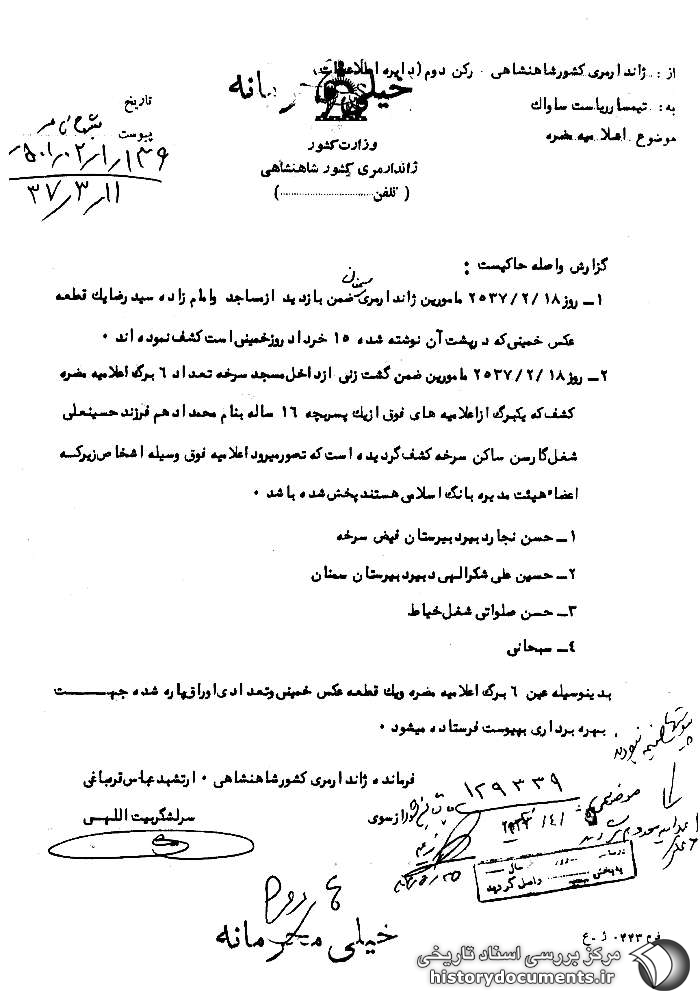 از : ژاندارمری کشور شاهنشاهی . رکن دوم (دایره اطلاعات)
به : تیمسار ریاست ساواک
موضوع اعلامیه مضره
خیلی محرمانه
وزارت کشور
ژاندارمری کشور شاهنشاهی
( تلفن .................... )
تاریخ
پیوست
گزارش واصله حاکیست :
۱ــ روز ۲۵۳۷/۲/۱۸ مامورین ژاندارمری ضمن بازدید از مساجد وامام زاده سید رضا یک قطعه
عکس خمینی که در پشت آن نوشته شده ۱۵ خرداد روز خمینی است کشف نموده اند .
۲ــ روز ۲۵۳۷/۲/۱۸ مامورین ضمن گشت زنی از داخل مسجد سرخه تعداد ۶ برگ اعلامیه مضره
کشف که یکبرگ از اعلامیه های فوق از یک پسربچه ۱۶ ساله بنام محمد ادهم فرزند حسینعلی
شغل گارسن ساکن سرخه کشف گردیده است که تصور میرود اعلامیه فوق وسیله اشخاص زیر که
اعضاء هیئت مدیره بانک اسلامی هستند پخش شده باشد .
۱ــ حسن نجار دبیر دبیرستان فیض سرخه
۲ــ حسین علی شکرالهی دبیر دبیرستان سمنان
۳ــ حسن صلواتی شغل خیاط
۴ــ سبحانی
بدینوسیله عین ۶ برگ اعلامیه مضره ویک قطعه عکس خمینی وتعدادی اوراق پاره شده جهت
بهره برداری بپیوست فرستاده میشود .
فرمانده ژاندارمری کشور شاهنشاهی . ارتشبد عباس قرباغی
از سوی
سرلشگر بیت اللهی
۱۲۹۳۳۹
واصل گردید
خیلی محرمانه
مرکز بررسی اسناد تاریخی
historydocuments.ir